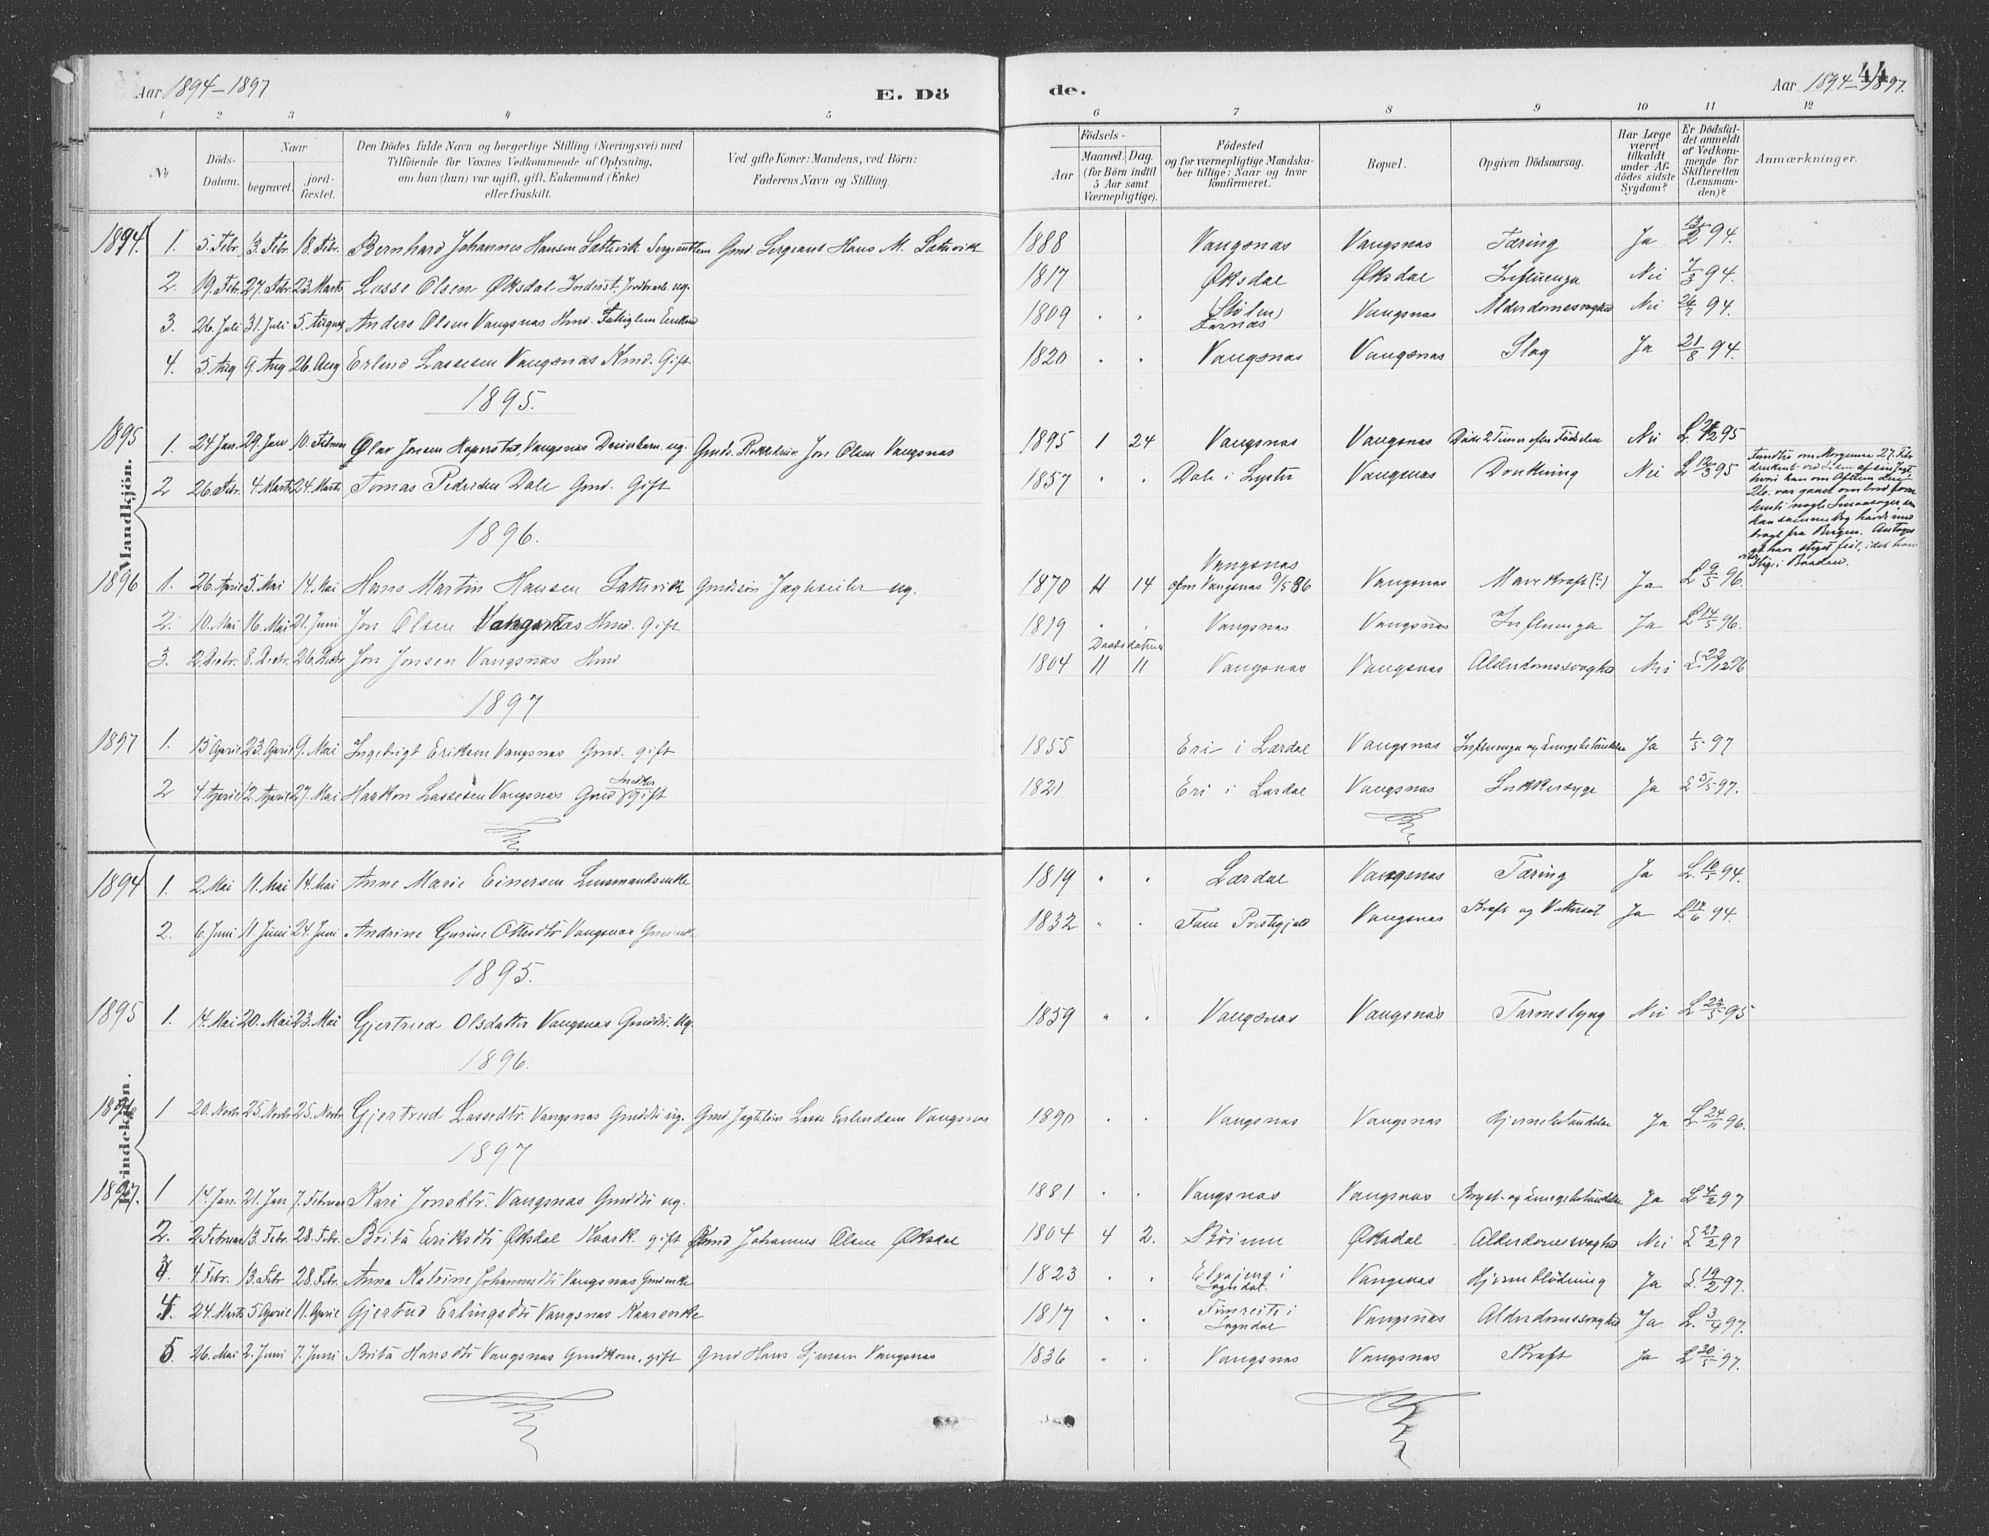 Aar 1894-1897
E. Dö
de.
Aar 1894-1897.
44
1 2 3 4 5 6 7 8 9 10 11 12
No
Döds-Datum.
Naar
begravet.
jord-fæstet.
Den Dödes fulde Navn og borgerlige Stilling (Næringsvei) med
Tilföiende for Voxnes Vedkommende af Oplysning,
om han (hun) var ugift, gift, Enkemand (Enke)
eller fraskilt.
Ved gifte Koner: Mandens, ved Börn:
Faderens Navn og Stilling.
Födsels-
Aar
Maaned. Dag.
(for Börn indtil
5 Aar samt
Værnepligtige).
Födested
og for værnepligtige Mandska-
ber tillige: Naar og hvor
konfirmeret.
Bopæl.
Opgiven Dödsaarsag.
Har Læge
været
tilkaldt
under Af-
dödes sidste
Sygdom?
Er Dödsfal-
det anmeldt
af Vedkom-
mende for
Skifteretten
(Lensman-
den)?
Anmærkninger.
Mandkjön.
1894. 1. 5 Febr. 13 Febr. 18 Febr. Bernhard Johannes Hansen Lathvik Gmd. Sergeant Hans M. Lathvik 1888 Vangsnas Vangsnas Tæring Ja 13/2 94.
2. 19. Febr. 27. Febr. 23 Marts Lasse Olsen Øksdal Inderst. ug. 1817 Øksdal Øksdal Influenza Nei 7/3 94.
3. 26. Juli 31. Juli 5. August Anders Olsen Vangsnas Hmd. 1809 " " (Stölen) Farnæs Vangsnas Alderdomssvaghed Nei 26/7 94.
4. 5 Aug 9. Aug 26. Aug Erlend Lassesen Vangsnas Kmd. Gift 1820 " " Vangsnas Vangsnas Slag Ja 21/8 94.
1895.
1895 1. 24 Jan. 29. Jan 10. Februar Olav Jonsen Hoperstad, Vangsnas ug. Gmd. Jon Olsen Vangsnas 1895 1 24 Vangsnas Vangsnas Döde 2 Timer efter Födselen Nei 95
2 26. Febr. 4 Marts 24. Marts Tomas Pedersen Dale Gmd. Gift 1857 " " Dale i Lyster Vangsnas Drukning Nei L 12/3 95
Fandtes om Morgenen 27. Febr
druknet ved Siden af sin Jagt,
hvori han om Aftenen den
26. var gaaet ombord for at
hente nogle Smaasager, som
han samme Dag havde med
bragt fra Bergen. Antages
at have steget feil, idet han vilde
stige i Baaden.
1896.
1896 1. 26 April 5. Mai 14. Mai Hans Martin Hansen Lathvik Gmdsön Jagtseiler ug. 1870 4 14 Vangsnas cfm Vangsnas 9/5 86 Vangsnas Mavekræft (?) Ja L 9/5 96.
2. 10. Mai 16. Mai 21. Juni Jon Olsen Vangsnas Hmd. gift 1819 " " Vangsnas Vangsnas Influenza Ja L 14/5 96.
Daabsdatum
3. 2. Decbr. 8. Decbr. 26. Decbr. Jon Jonsen Vangsnas Hmd 1804 11 11 Vangsnas Vangsnas Alderdomssvaghed Nei L 22/12 96
1897
1897 1. 15 April 23. April 9. Mai Ingebrigt Eriksen Vangsnas Gmd. gift 1855 Eri i Lærdal Vangsnas Influenza og Lungebetændelse Ja 1/5 97
2 4. April 12. April 27. Mai Haakon Lassesen Vangsnas Gmd gift 1821 Eri i Lærdal Vangsnas Sukkersyge Ja L 5/5 97.
Kvindekjön.
1894 1. 2. Mai 11. Mai 14. Mai Anne Marie Einersen Lensmandsenke 1819 " " Lærdal Vangsnas Tæring Ja L. 10/5 94.
2. 6. Juni 11 Juni 24. Juni Andrine Gurine Ottesdtr Vangsnas Gmdenke 1832 " " Præstegjeld Vangsnas Kræft og Vattersot Ja L 12/6 94.
1895.
1895 1. 14. Mai 20. Mai 23. Mai Gjertrud Olsdatter Vangsnas Gmddtr. ug. 1859 " " Vangsnas Vangsnas Tarmslyng Nei L 22/5 95
1896.
1896 1 20. Novbr 25 Novbr 25. Novbr Gjertrud Lassedtr. Vangsnas Gmddtr ug. Gmd Lasse Erlendsen Vangsnas 1890 " " Vangsnas Vangsnas Hjernebetændelse Ja L 24/11 96.
1897
1897. 1 14. Jan. 21. Jan 7. Februar Kari Jonsdtr. Vangsnas Gmddtr ug. 1881 " " Vangsnas Vangsnas Bryst- og Lungebetændelse Ja L 4/2 97
2. 2 Februar 13. Febr. 28. Febr. Brita Eriksdtr Øksdal Kaark. gift Johannes Olsen Øksdal 1804 4 2. Øksdal Alderdomssvaghed Nei L 27/2 97
3. 4. Febr. 13. Febr 28. Febr. Anna Katrine Johannesdtr Vangsnas Gmdenke 1823 " " i Sogndal Vangsnas Hjerneblödning Ja L. 19/2 97.
4. 24. Marts 5 April 11. April Gjertrud Erlingsdtr Vangsnas Kaarenke 1817 " " Fimreite i Sogndal Vangsnas Alderdomssvaghed Ja L. 3/4 97.
5. 26. Mai 2. Juni 7. Juni Brita Hansdtr Vangsnas Gmdkone. gift Gmd Hans Vangsnas 1836 " " Vangsnas Vangsnas Kræft Ja L 30/5 97.